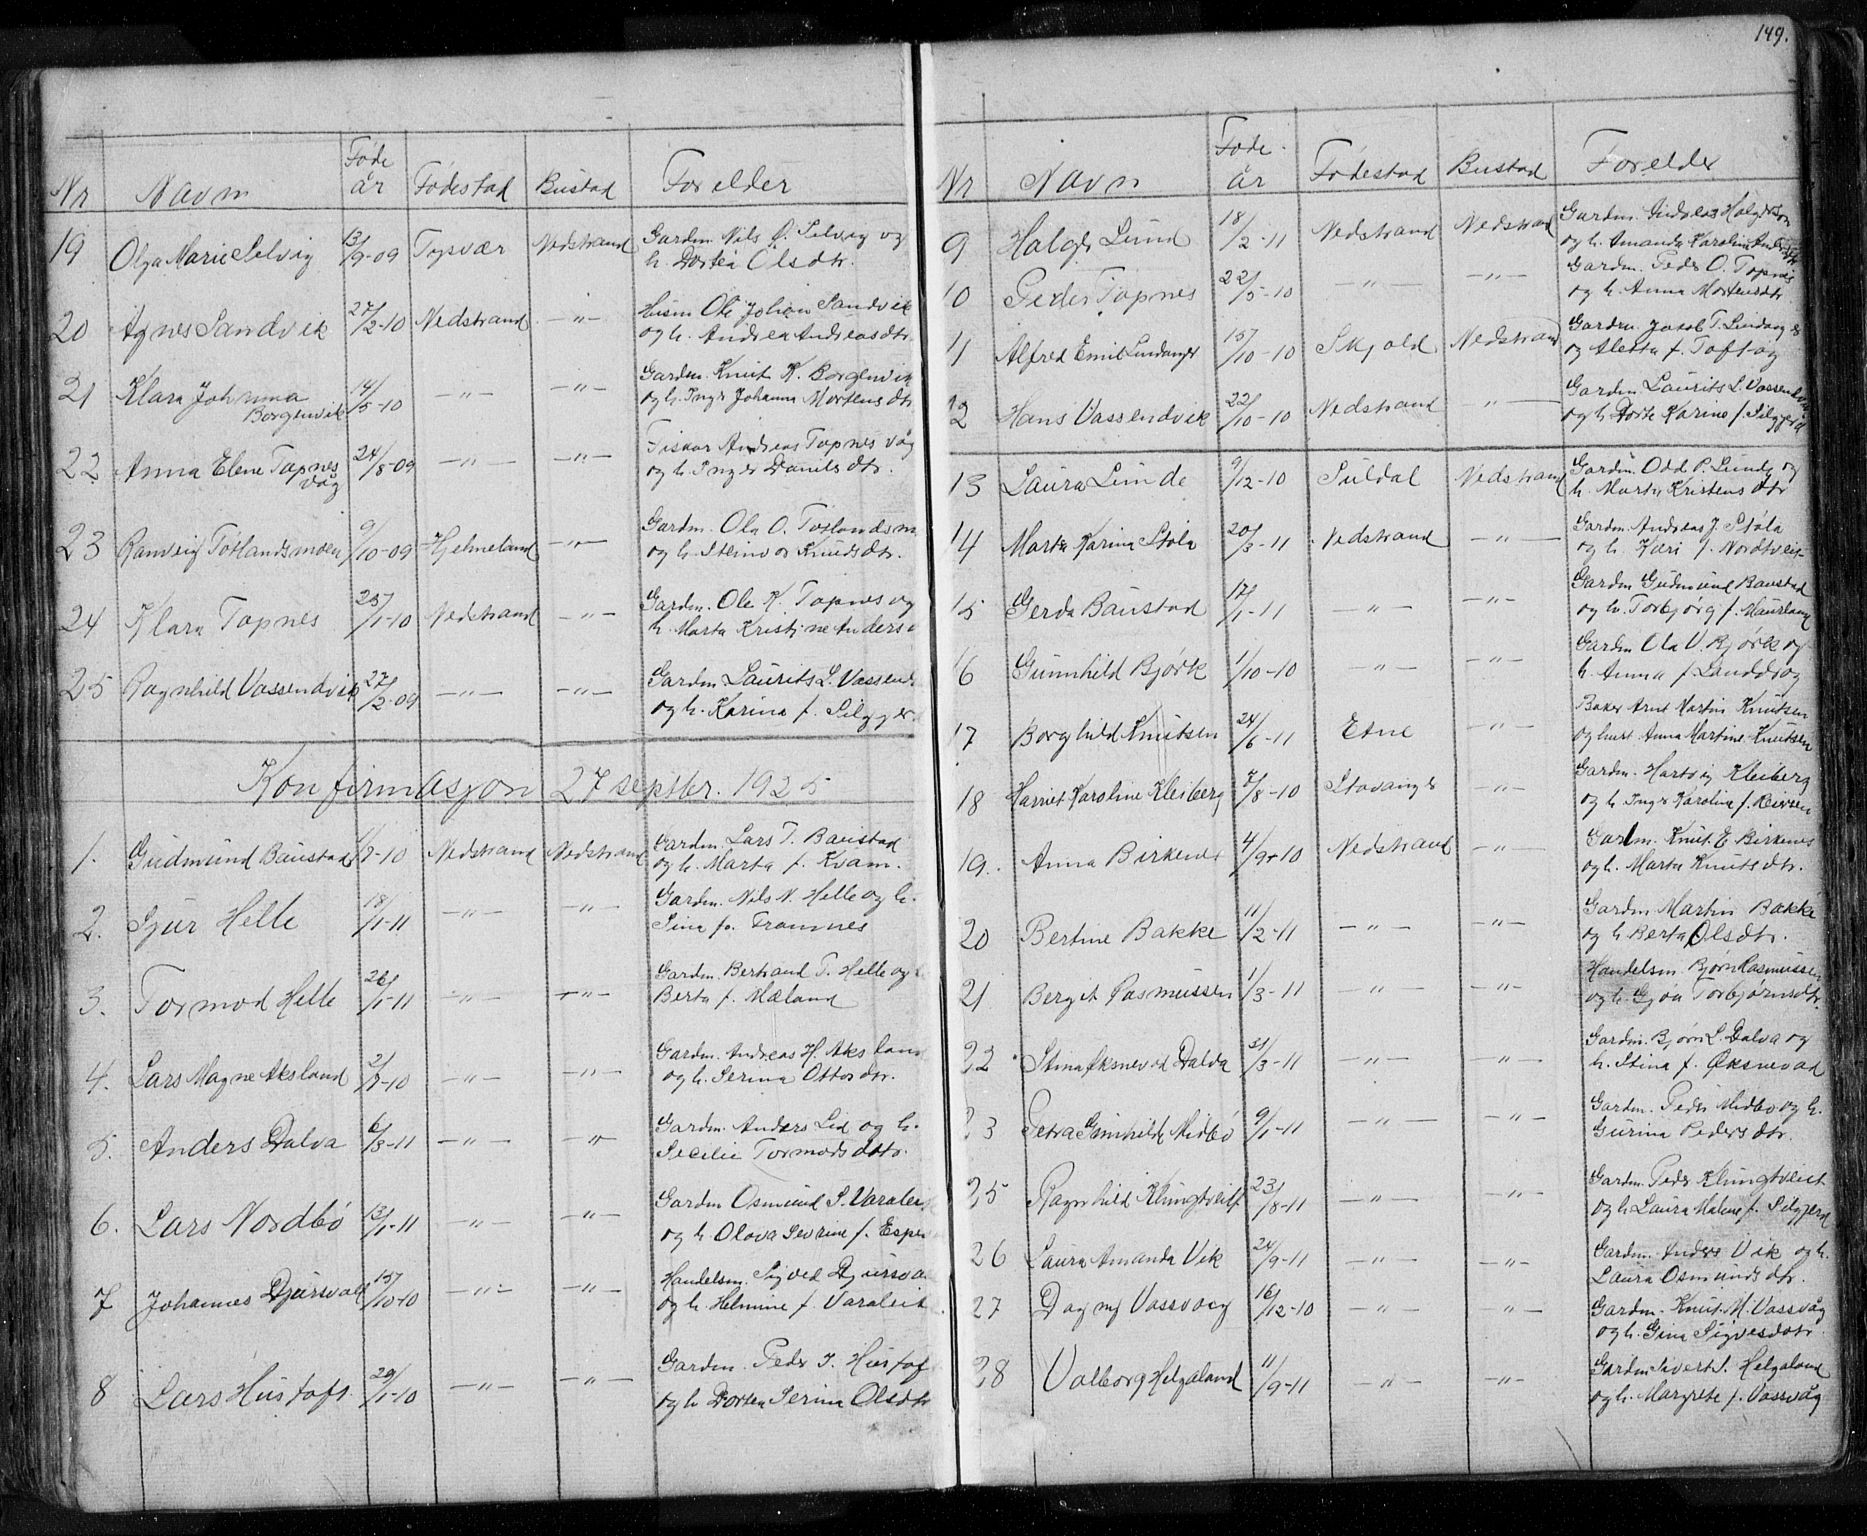 149.
Nr Navn Føde år Fødestad Bustad Forelder
19 Olga Marie Selvig 13/9-09 Tysvær Nedstrand Gardm. Nils O. Selvig og
h. Dortea Olsdtr.
20 Agnes Sandvik 27/2-10 Nedstrand -"- Husm Ole Johan Sandvik
og h. Andrea Andreasdtr.
21 Klara Johanna Borgenvik 14/5-10 -"- -"- Gardm. Knut K. Borgenvik
og h. Inger Johanna Mortensdtr
22 Anna Elene Topnes våg 24/8-09 -"- -"- Fiskar Andreas Topnes våg
og h. Inger Danielsdtr.
23 Ranveig Totlandsmoen 9/10-09 Hjelmeland -"- Gardm. Ola O. Totlandsm
og h. Steinvor Knudsdtr.
24 Klara Topnes 25/1-10 Nedstrand -"- Gardm. Ole K. Topnes og
h. Marta Kristine Anders
25 Ragnhild Vassendvik 27/2-09 -"- -"- Gardm. Laurits L. Vassend
og h. Karina f. Selgjer
Konfirmasjon 27 septbr. 1925
1. Gudmund Baustad -10 Nedstrand Nedstrand Gardm. Lars T. Baustad
og h. Marta f. Kvam.
2. Sjur Helle 18/1-11 -"- -"- Gardm. Nils N. Helle og h.
Sina f. Tramnes
3. Tormod Helle 26/1-11 -"- -"- Gardm. Bertrand T. Helle og
Berta f. Mæland
4. Lars Magne Aksland 2/7-10 -"- -"- Gardm. Andreas H. Aksland
og h. Serina Ottosdtr.
5. Anders Dalva 6/3-11 -"- -"- Gardm. Anders Lid og h.
Secilie Tormodsdotr.
6. Lars Nordbø 13/1-11 -"- -"- Gardm Osmund S. Varalei
og h Olava Sevrine f. Espe
7 Johannes Djursvoll 15/10-10 -"- -"- Handelsm. Sigved Djursvo
og h. Helmine f. Varaleit
8 Lars Hustoft 29/1-10 -"- -"- Gardm. Peder J. Hustof
og h Dortea Serina Olsdtr
Nr Navn Føde år Fødestad Bustad Forelder
9 Holger Lund 18/2-11 Nedstrand Nedstrand Gardm. Andreas Holgerson
og h. Amanda Karoline
10 Peder Topnes 22/5-10 -"- -"- Gardm. Peder O. Topnes
og h. Anna Mortensdtr
11 Alfred Emil Lindanger 15/10-10 Skjold Nedstrand Gardm. Jakob T. Lindanger
og Aletta f. Toftøy
12 Hans Vassendvik 22/10-10 Nedstrand -"- Gardm. Laurits L. Vassendvik
og h Dorte Karine f. Selgjerd
13 Laura Lunde 9/12-10 Suldal Nedstrand Gardm. Odd P. Lunde og
h. Marta Kristensdtr
14 Marta Karina Støle 20/3-11 Nedstrand -"- Gardm. Andreas J. Støle
og h. Kari f. Nordtveit
15 Gerda Baustad 17/1-11 -"- -"- Gardm Gudmund Baustad
og h. Torbjørg f. Maurland
16 Gunnhild Bjørk 1/10-10 -"- -"- Gardm Ola V. Bjørk og
h. Anna f.
17 Borghild Knutsen 24/6-11 Etne -"- Baker Arnt Martin Knutsen
og hust Anna Martine Knutsen
18 Harriet Karoline Kleiberg 7/8-10 Stavanger -"- Gardm. Hartvig Kleiberg
og h Inger Karolina f.
19. Anna Birkenes 4/9-10 Nedstrand -"- Gardm. Knut E Birkenes
og h. Marta Knutsdtr.
20 Bertine Bakke 11/2-11 -"- -"- Gardm Martin Bakke
og h Berta Olsdtr.
21 Bergit Rasmussen 1/3-11 -"- -"- Handelsm Bjørn Rasmussen
og h. Gjøa Torbjørnsdtr.
22 Stina Øksnevad Dalva 31/3-11 -"- -"- Gardm. Bjørn L. Dalva og
h. Stina f. Øksnevad
23 Petra Gunhild Midbø 9/1-11 -"- -"- Gardm. Peder Midbø og h.
Gurina Pedersdtr.
25 Ragnhild Klungtveit 23/8-11 -"- -"- Gardm. Peder Klungtveit
og h Laura Malene f. Selgjerd
26 Laura Amanda Vik 24/9-11 -"- -"- Gardm. Anders Vik og h.
Laura Osmundsdtr.
27 Dagny Vassvaag 16/12-10 -"- -"- Gardm. Knut M. Vassvåg
og h. Gina Sigvesdotr
28 Valborg Helgaland 11/9-11 -"- -"- Gardm Sivert S. Helgaland
og h. Margrete f. Vassvåg